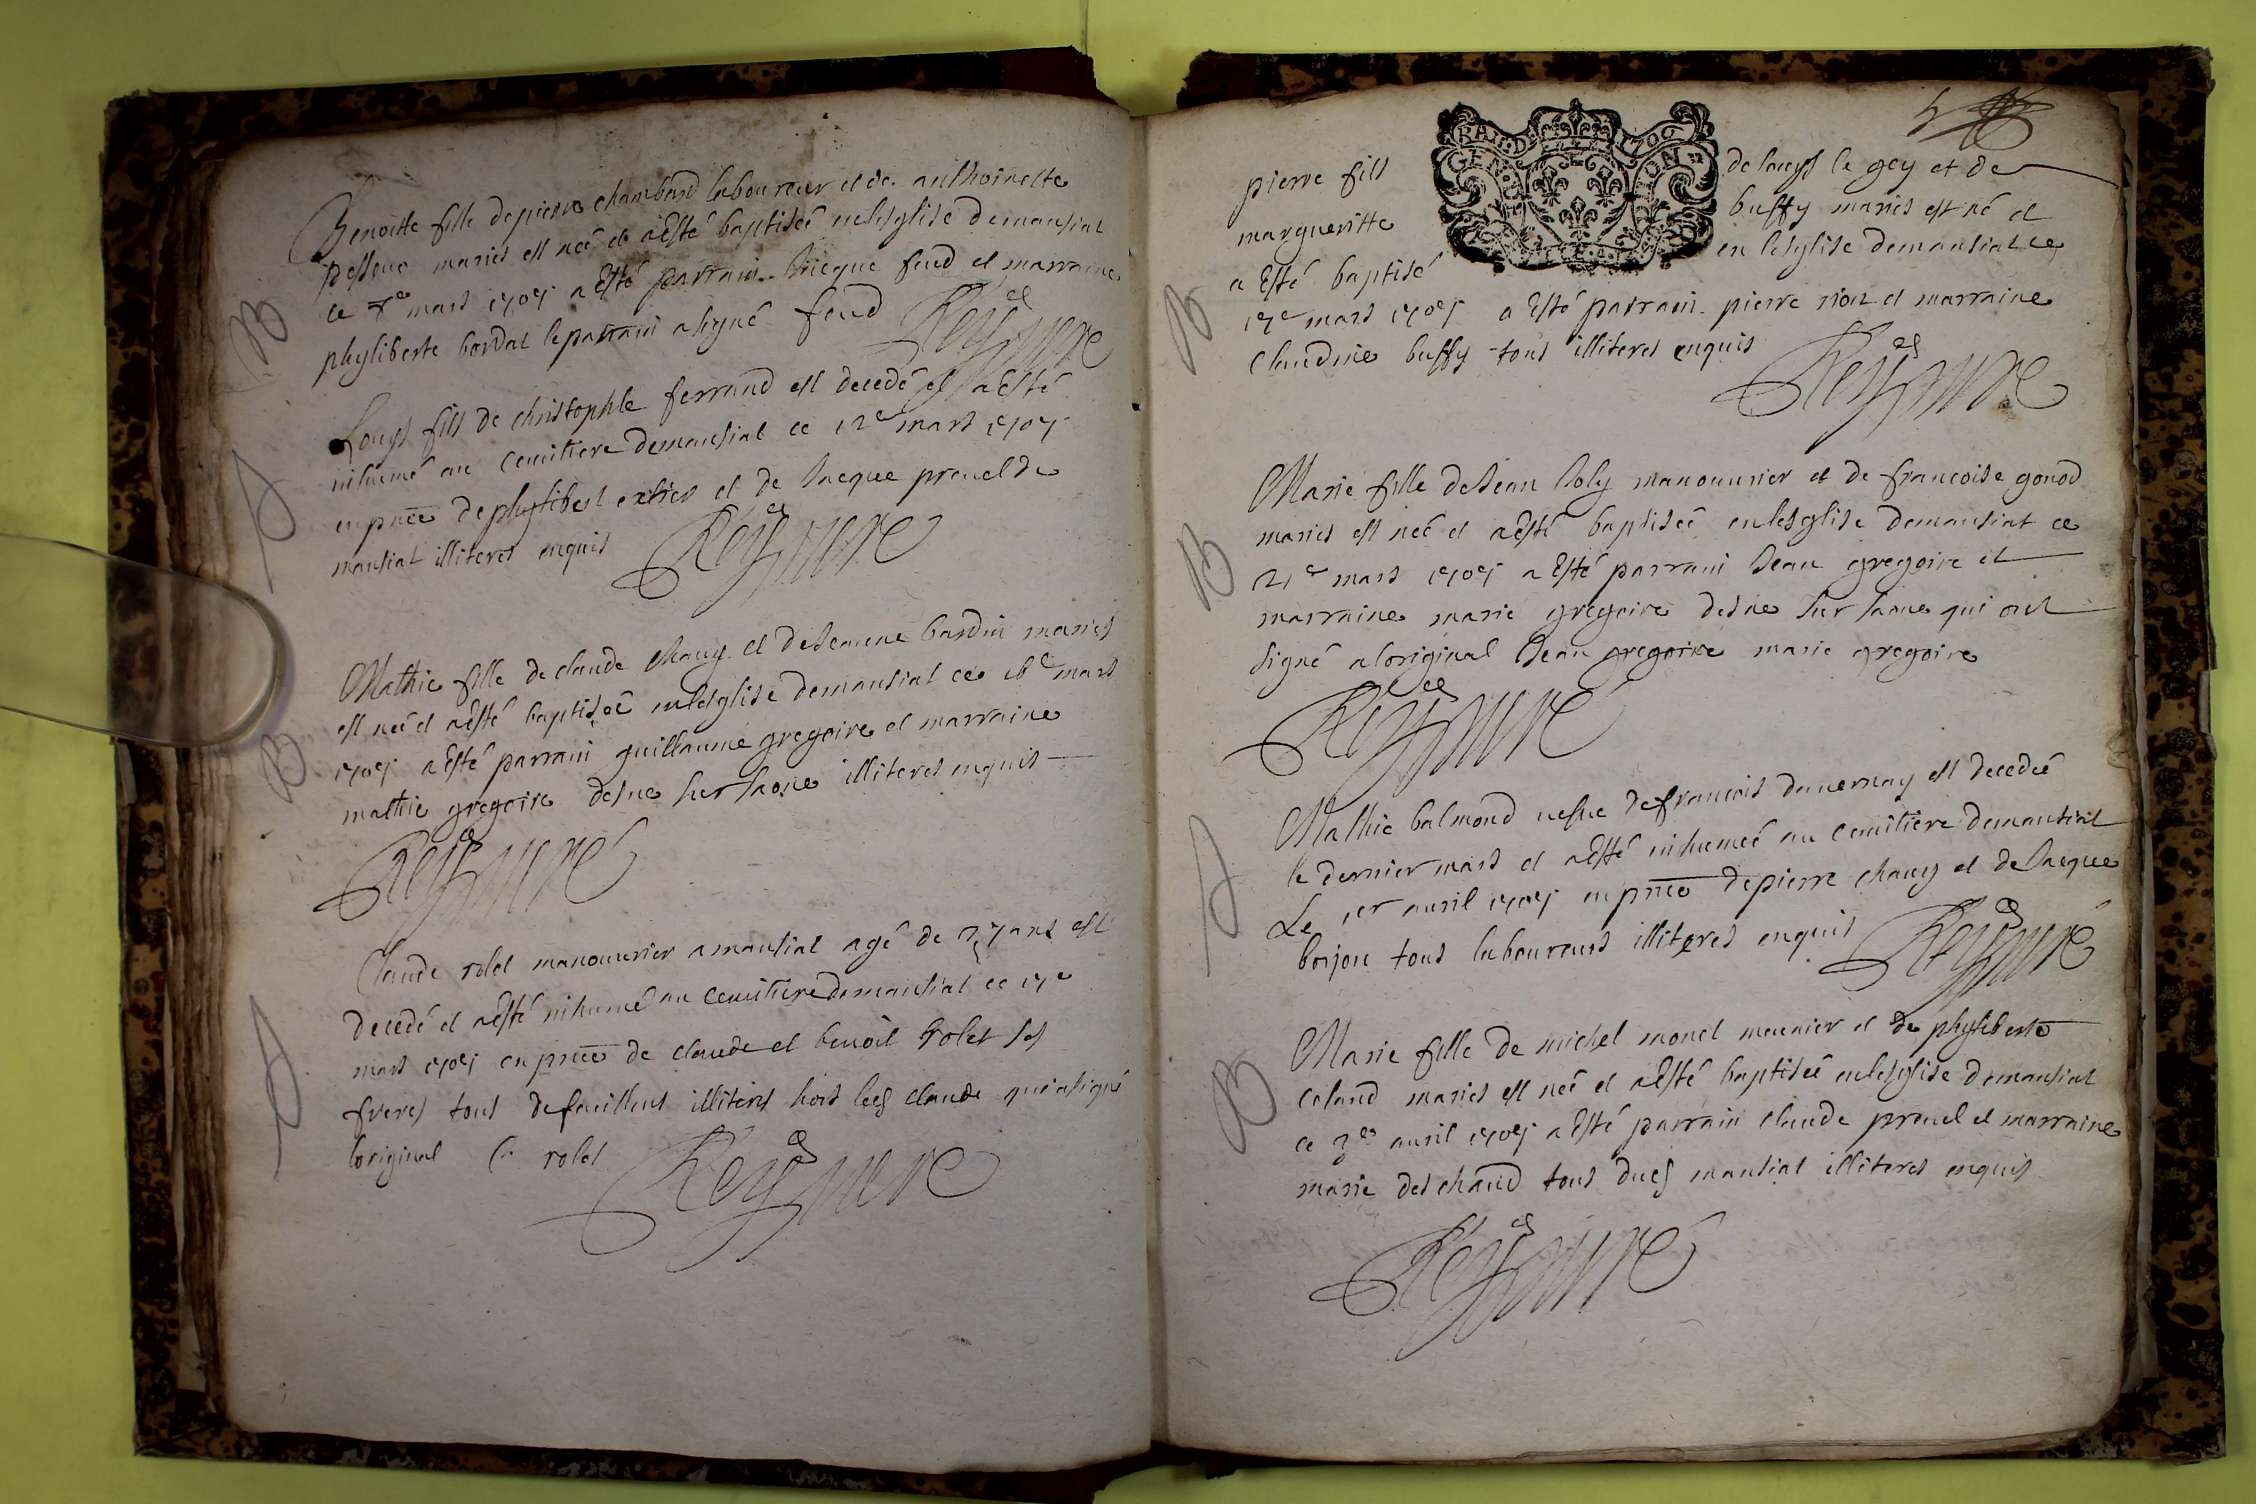 Benoitte fille de pierre chambard laboureur et de anthoinette
maries est neé et aésté baptiseé en lesglise de mansiat
ce 7e mars 1705 a ésté parrain Jacque feud et marraine
phyliberte bordat le parrain a signé feud
B
Louys fils de christophle ferrand est decedé et a ésté
inhumé au cemitiere de mansiat ce 12e mars 1705
en pnce de phylibert et de Jacque prevel de
mansiat illiteres enquis
Mathie fille de claude chavy et de Jeanne bardin maries
est neé et aésté baptiseé en lesglise de mansiat ce 16e mars
1705 a ésté parrain guillaume gregoire et marraine
mathie gregoire desne sur saone illiteres enquis
B
Claude rolet manouvrier a mansiat agé de ans est
decedé et aésté inhumé au cemitiere de mansiat ce 17e
mars 1705 en pnce de claude et benoit rolet ses
freres tous illiteres hors led claude qui a signé
loriginal C rolet
pierre fils de Louys le gey et de
margueritte buffy maries est né et
a ésté baptisé en lesglise de mansiat ce
17e mars 1705 a ésté parrain pierre et marraine
claudine buffy tous illiteres enquis
B
GENERATION
1706
Marie fille de Jean Joly manouvrier et de francoise gonod
maries est neé et aésté baptiseé en lesglise de mansiat ce
21e mars 1705 a ésté parrain Jean gregoire et
marraine marie gregoire desne sur saone qui ont
signé a loriginal Jean gregoire marie gregoire
B
Mathie balmond vefve de francois duvernay est decedeé
le dernier mars et aésté inhumeé au cemitiere de mansiat
Le 1er avril 1705 en pnce de pierre chavy et de Jacque
boijon tous laboureurs illiteres enquis
Marie fille de michel monet meunier et de phyliberte
coland maries est neé et aésté baptiseé en lesglise de mansiat
ce 3e avril 1705 a ésté parrain claude prevel et marraine
marie deschand tous dud mansiat illiteres enquis
B